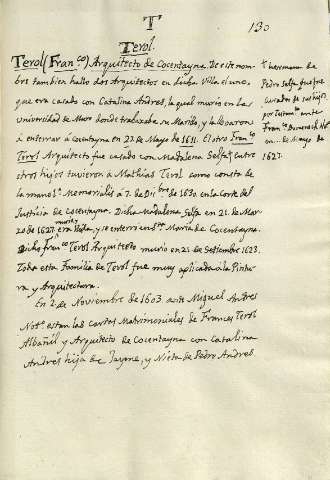 T
130
Terol.
Terol (Fran.co) Arquitecto de Cocentayna. De este nom-
bre tambien hallo dos Arquitectos en dicha Villa el uno,
que era casado con Catalina Andres, la qual murio en la
Universidad de Muro donde trabaxaba su Marido, y la llevaron
á enterrar á Cocentayna en 27. de Mayo de 1611. El otro Fran.co
Terol Arquitecto fue casado con Madalena Selfa, entre
otros hijos tuvieron á Mathias Terol como consta de
la mano Memorialis á 7. de Dic.bre de 1630. en la Corte del
Justicia de Cocentayna. Dicha Madalena Selfa en 21. de Mar-
zo de 1627. era Viuda, y se enterro en S.ta Maria de Cocentayna.
murio, y
Dicho Fran.co Terol Arquitecto murio en 21. de Setiembre 1623.
Toda esta Familia de Terol fue muy aplicada á la Pintu-
ra y Arquitectura.
En 2. de Noviembre de 1603. ante Miguel Andres
Not.o estan las Cartas Matrimoniales de Frances Terol
Albañil y Arquitecto de Cocentayna con Catalina
Andres hija de Jayme, y Nieta de Pedro Andres
hermana de
Pedro Selfa, que fue
curador de sus hijos,
ante
Fran.co
Not.o
de Mayo de
1627.